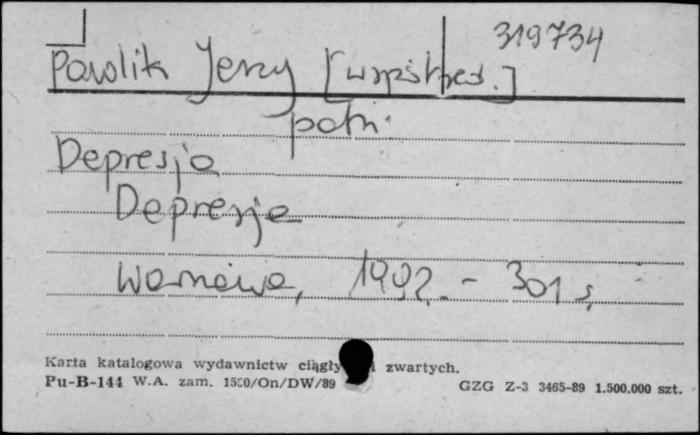 319734
Pawlik Jerzy [współred.]
patrz:
Depresja
Depresje
Warszawa, 1992. - 301 s.
Karta katalogowa wydawnictw ciągły i zwartych.
Pu-B-144 W.A. zam. 1500/On/DW/89 GZG Z-3 3465-89 1.500.000 szt.